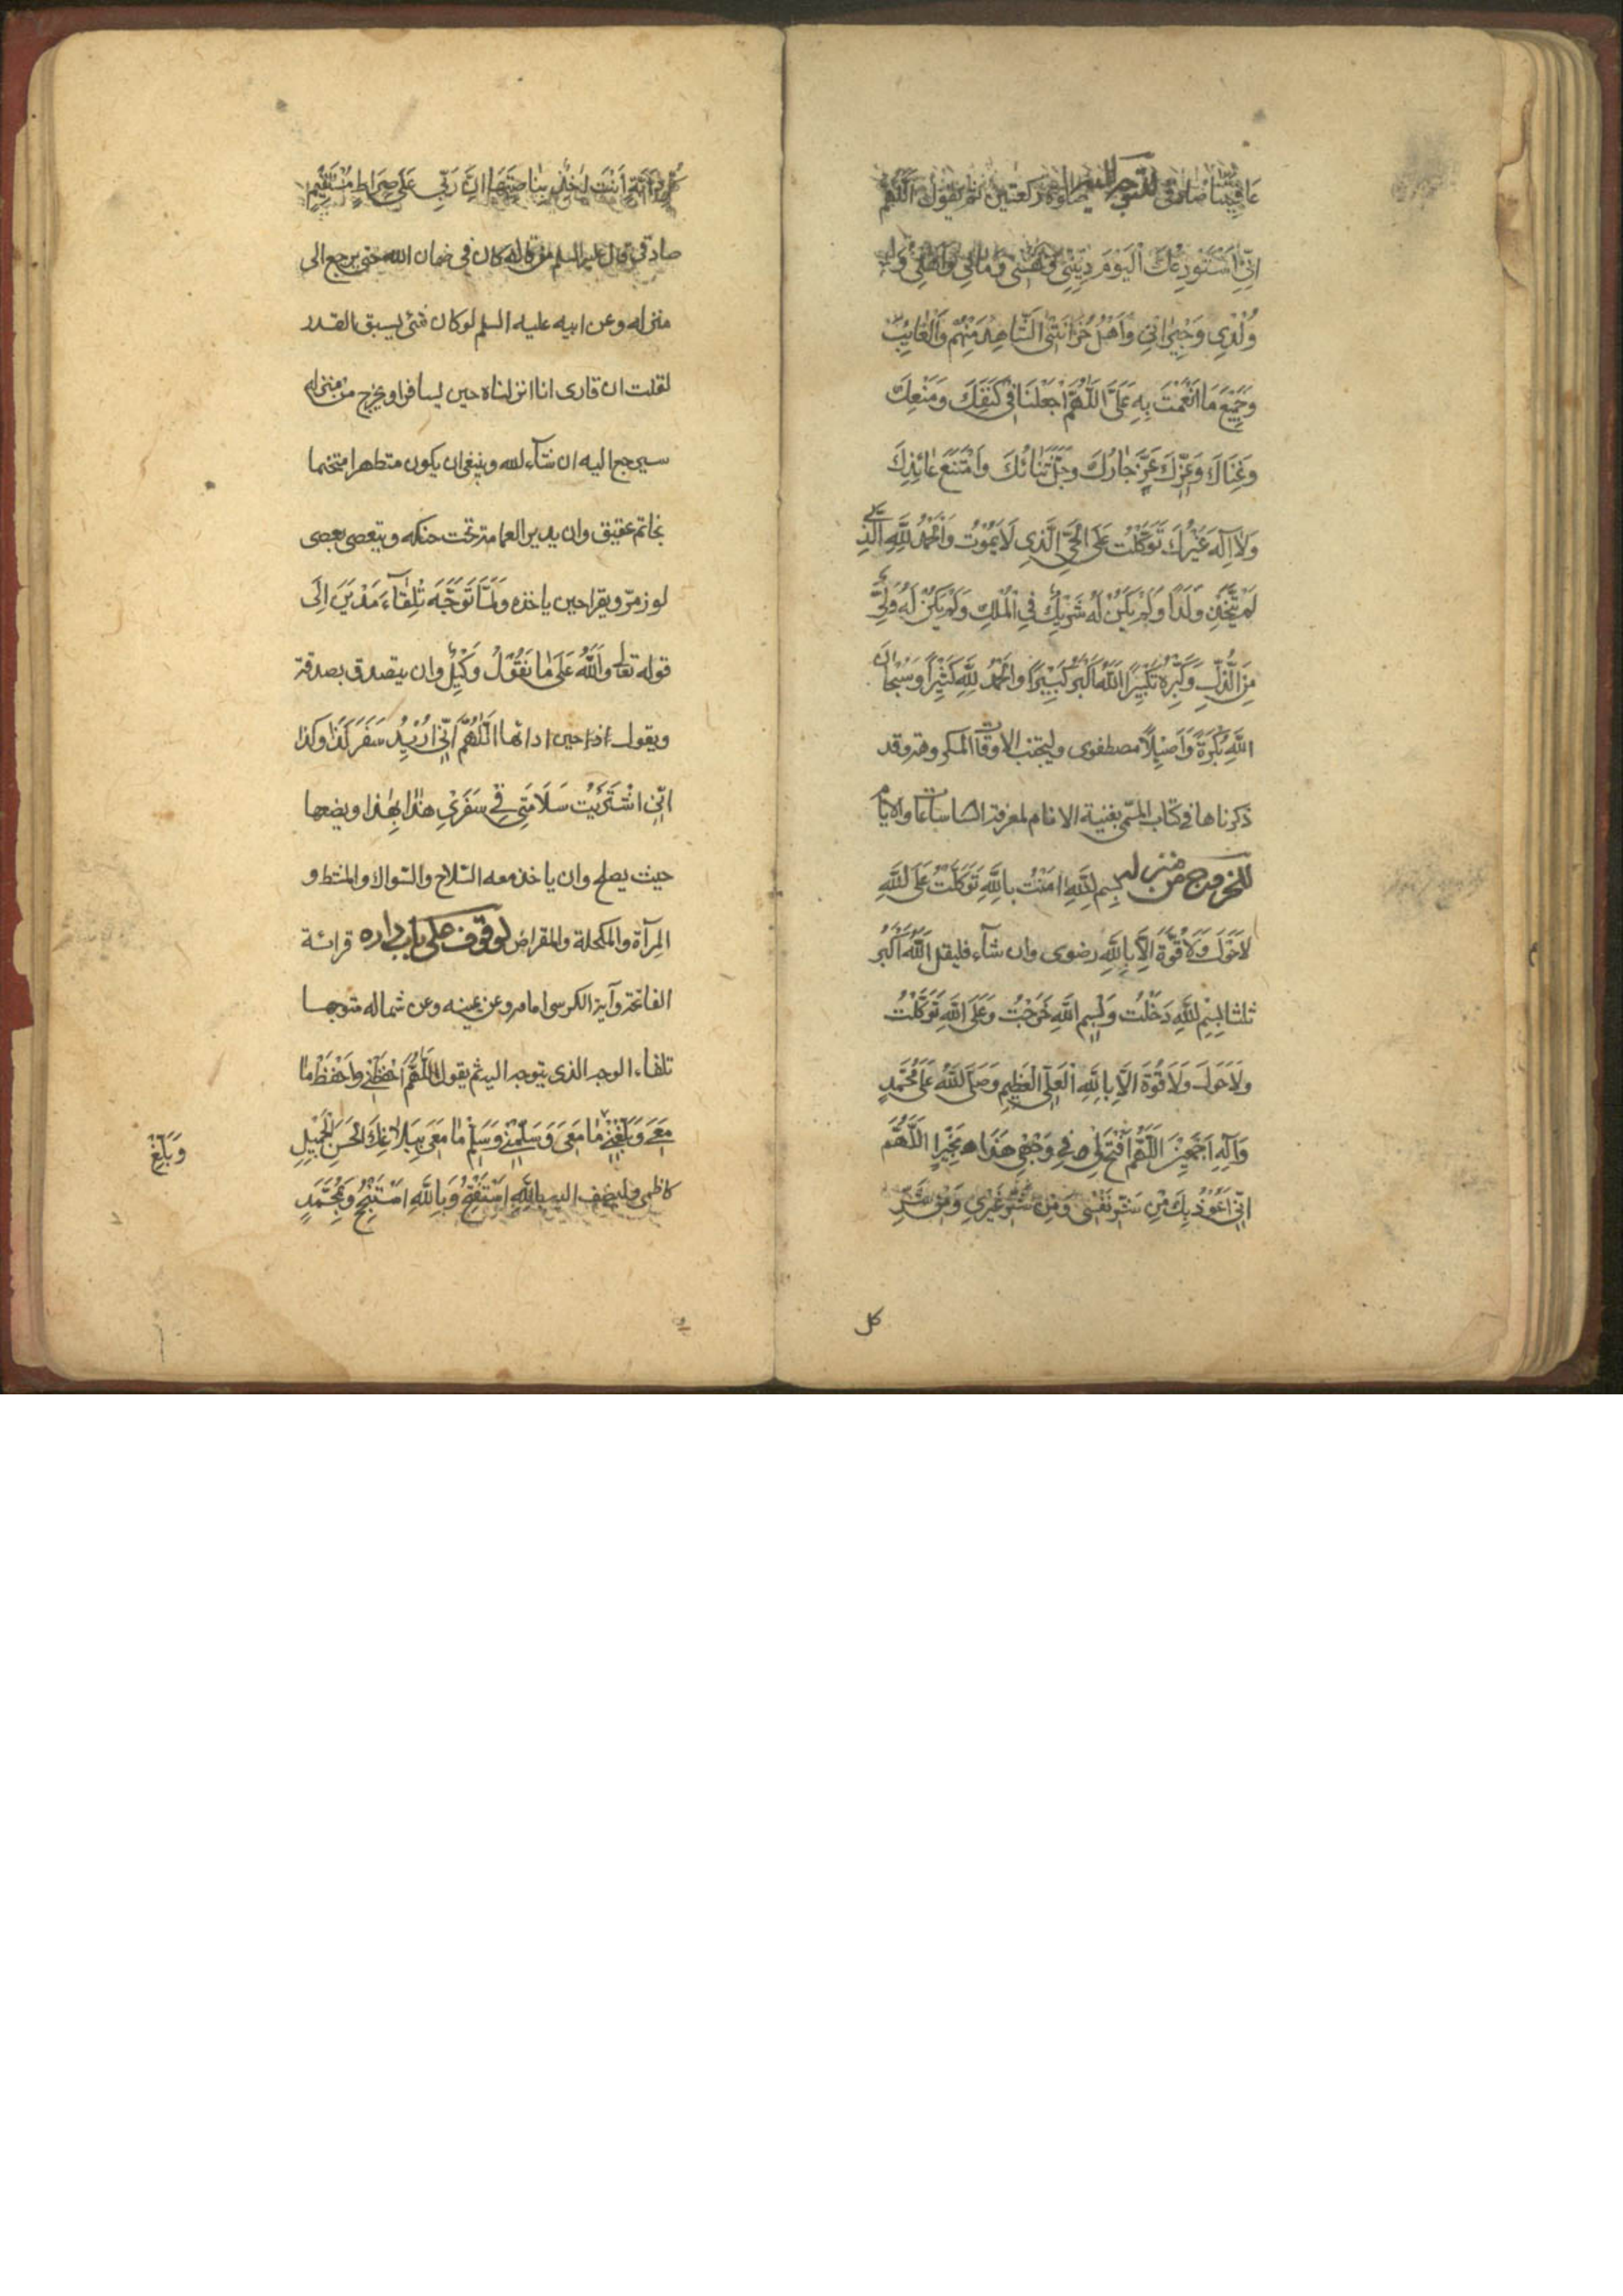 عَافِيَتِنا صادقى للتوجه للسفر صلوة ركعتين ثم يقول اَللّهُمَّ
اِنّى اَسْتَوْدِعُكَ الْيَوْمَ دِيْنِىْ وَنَفْسِى وَمَالِى وَاَهْلِى وَ
وُلْدِى وَجِيْرَانِى وَاَهْلَ حُزَانَتِىْ الشَّاهِدَ مِنْهُمْ وَالْغَائِبَ
وَجَمِيْعَ مَا اَنْعَمْتَ بِهِ عَلَىَّ اَللّهُمَّ اجْعَلْنَا فِىْ كَنَفِكَ وَمَنْعِكَ
وَعِزِّكَ عَزَّ جَارُكَ وَجَلَّ ثَنَائُكَ وَامْتَنَعَ عَائِذُكَ
وَلَا اِلهَ غَيْرُكَ تَوَكَّلْتُ عَلَى الْحَىِّ الَّذِى لَا يَمُوْتُ وَالْحَمْدُ لِلّهِ الَّذِى
لَمْ يَتَّخِذْ وَلَدًا وَلَمْ يَكُنْ لَهُ شَرِيْكٌ فِى الْمُلْكِ وَلَمْ يَكُنْ لَهُ وَلِىٌّ
مِنَ الذُّلِّ وَكَبِّرْهُ تَكْبِيْرًا اَللّهُ اَكْبَرُ كَبِيْرًا وَالْحَمْدُ لِلّهِ كَثِيْرًا وَسُبْحَانَ
اللّهِ بُكْرَةً وَاَصِيْلًا مصطفوى وليجتنب الاوقات المكروهة وقد
ذكرناها فى كتاب المسمّى بغنية الانام لمعرفة الساعات والايام
للخروج من منزله بِسْمِ اللّهِ امَنْتُ بِاللّهِ تَوَكَّلْتُ عَلَى اللّهِ
لَاحَوْلَ وَلَا قُوَّةَ اِلَّا بِاللّهِ رضوى وان شآء فليقل اَللّهُ اَكْبَرُ
ثلثا بِسْمِ اللّهِ دَخَلْتُ وَبِسْمِ اللّهِ خَرَجْتُ وَعَلَى اللّهِ تَوَكَّلْتُ
وَلَا حَوْلَ وَلَا قُوَّةَ اِلَّا بِاللّهِ الْعَلِىِّ الْعَظِيْمِ وَصَلَّى اللّهُ عَلَى مُحَمَّدٍ
وَآلِهِ اَجْمَعِيْنَ اَللّهُمَّ افْتَحْ لِى فِى وَجْهِى هَذَا بِخَيْرٍ اَللّهُمَّ
اِنِّى اَعُوْذُ بِكَ مِنْ شَرِّ نَفْسِى وَمِنْ شَرِّ غَيْرِى وَمِنْ شَرِّ
كل
دَآبَّةٍ اَنْتَ اخِذٌ بِنَاصِيَتِهَا اِنَّ رَبِّى عَلَى صِرَاطٍ مُسْتَقِيْمٍ
صادقى قال عليه السلم من قاله كان فى ضمان الله حتى يرجع الى
منزله وعن ابيه عليه السلم لو كان شئ يسبق القدر
لقلت ان قارى انا انزلناه حين يسافر او يخرج من منزله
سيرجع اليه ان شآء الله وينبغى ان يكون متطهرا متختما
بخاتم عقيق وان يدير العمامة تحت حنكه ويتعصى بعصى
لوز مرّ ويقرا حين ياخذه وَلَمَّا تَوَجَّهَ تِلْقَآءَ مَدْيَنَ اِلَى
قوله تعالى وَاللّهُ عَلَى مَا نَقُوْلُ وَكِيْلٌ وان يتصدق بصدقة
ويقول حين ادائها اَللّهُمَّ اِنِّى اُرِيْدُ سَفَرَ كَذَا وَكَذَا
اِنِّى اشْتَرَيْتُ سَلَامَتِى فِى سَفَرِىْ هذَا بِهذَا ويضعها
حيث يصلح وان ياخذ معه السّلاح والسّواك والمشط و
المرآة والمكحلة والمقراض لوقوف على باب داره قرائة
الفاتحة وآية الكرسى امامه وعن يمينه وعن شماله متوجها
تلقاء الوجه الذى يتوجه اليه ثم يقول اَللّهُمَّ احْفَظْنِى وَاحْفَظْ مَا
مَعِىَ وَبَلِّغْنِىْ مَا مَعِىَ وَسَلِّمْنِى وَسَلِّمْ مَا مَعِىَ بِبَلَاغِكَ الْحَسَنِ الْجَمِيْلِ
وَبَلِّغْ
كاظمى وليضف اليه بِاللّهِ اَسْتَفْتِحُ وَبِاللّهِ اَسْتَنْجِحُ وَبِمُحَمَّدٍ